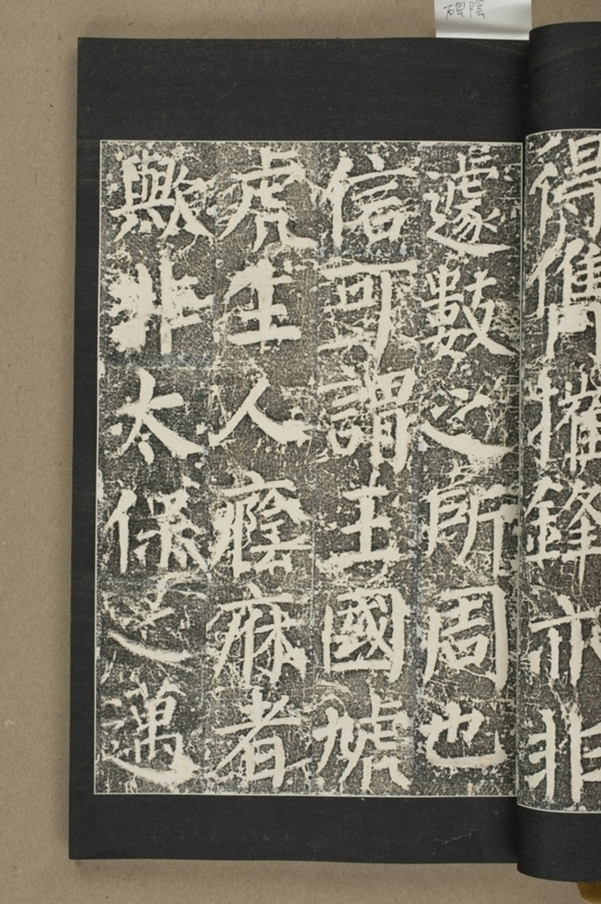 碑陰
得儁摧鋒亦非
遽數之所周也
信可謂王國虓
虎生人廕庥者
歟非太保之邁